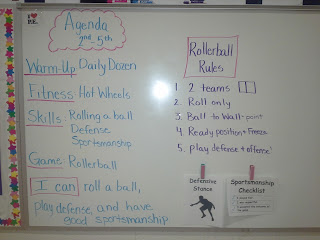 I ♥ P.E.
Agenda
2nd - 5th
Warm-Up: Daily Dozen
Fitness: Hot Wheels
Skills: Rolling a ball
Defense
Sportsmanship
Game: Rollerball
I can roll a ball,
play defense, and have
good sportsmanship
Rollerball
Rules
1. 2 teams
2. Roll only
3. Ball to Wall = point
4. Ready position + Freeze
5. Play defense + offense!
Defensive
Stance
Sportsmanship
Checklist